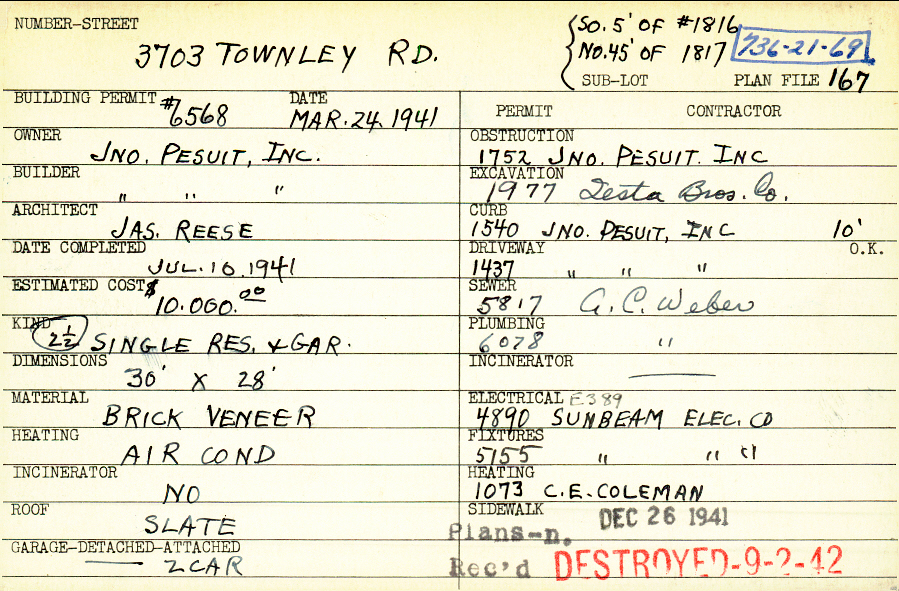 NUMBER-STREET
3703 TOWNLEY RD.
SO. 5' OF #1816
NO. 45' OF 1817
736-21-69
SUB-LOT PLAN FILE 167
BUILDING PERMIT #6568 DATE MAR. 24. 1941
OWNER
JNO. PESUIT, INC.
BUILDER
" " "
ARCHITECT
JAS. REESE
DATE COMPLETED
JUL. 10. 1941
ESTIMATED COST $
10.000.00
KIND
2 1/2 SINGLE RES. & GAR.
DIMENSIONS
30' X 28'
MATERIAL
BRICK VENEER
HEATING
AIR COND
INCINERATOR
NO
ROOF
SLATE
GARAGE-DETACHED-ATTACHED
2 CAR
PERMIT CONTRACTOR
OBSTRUCTION
1752 JNO. PESUIT. INC
EXCAVATION
1977 Testa Bros. Co.
CURB
1540 JNO. PESUIT, INC 10'
DRIVEWAY O.K.
1437 " " "
SEWER
5817 A. C. Weber
PLUMBING
6078 "
INCINERATOR
ELECTRICAL E389
4890 SUNBEAM ELEC. CO
FIXTURES
5155 " " "
HEATING
1073 C.E. COLEMAN
SIDEWALK
DEC 26 1941
Plans-n.
Rec'd DESTROYED-9-2-42